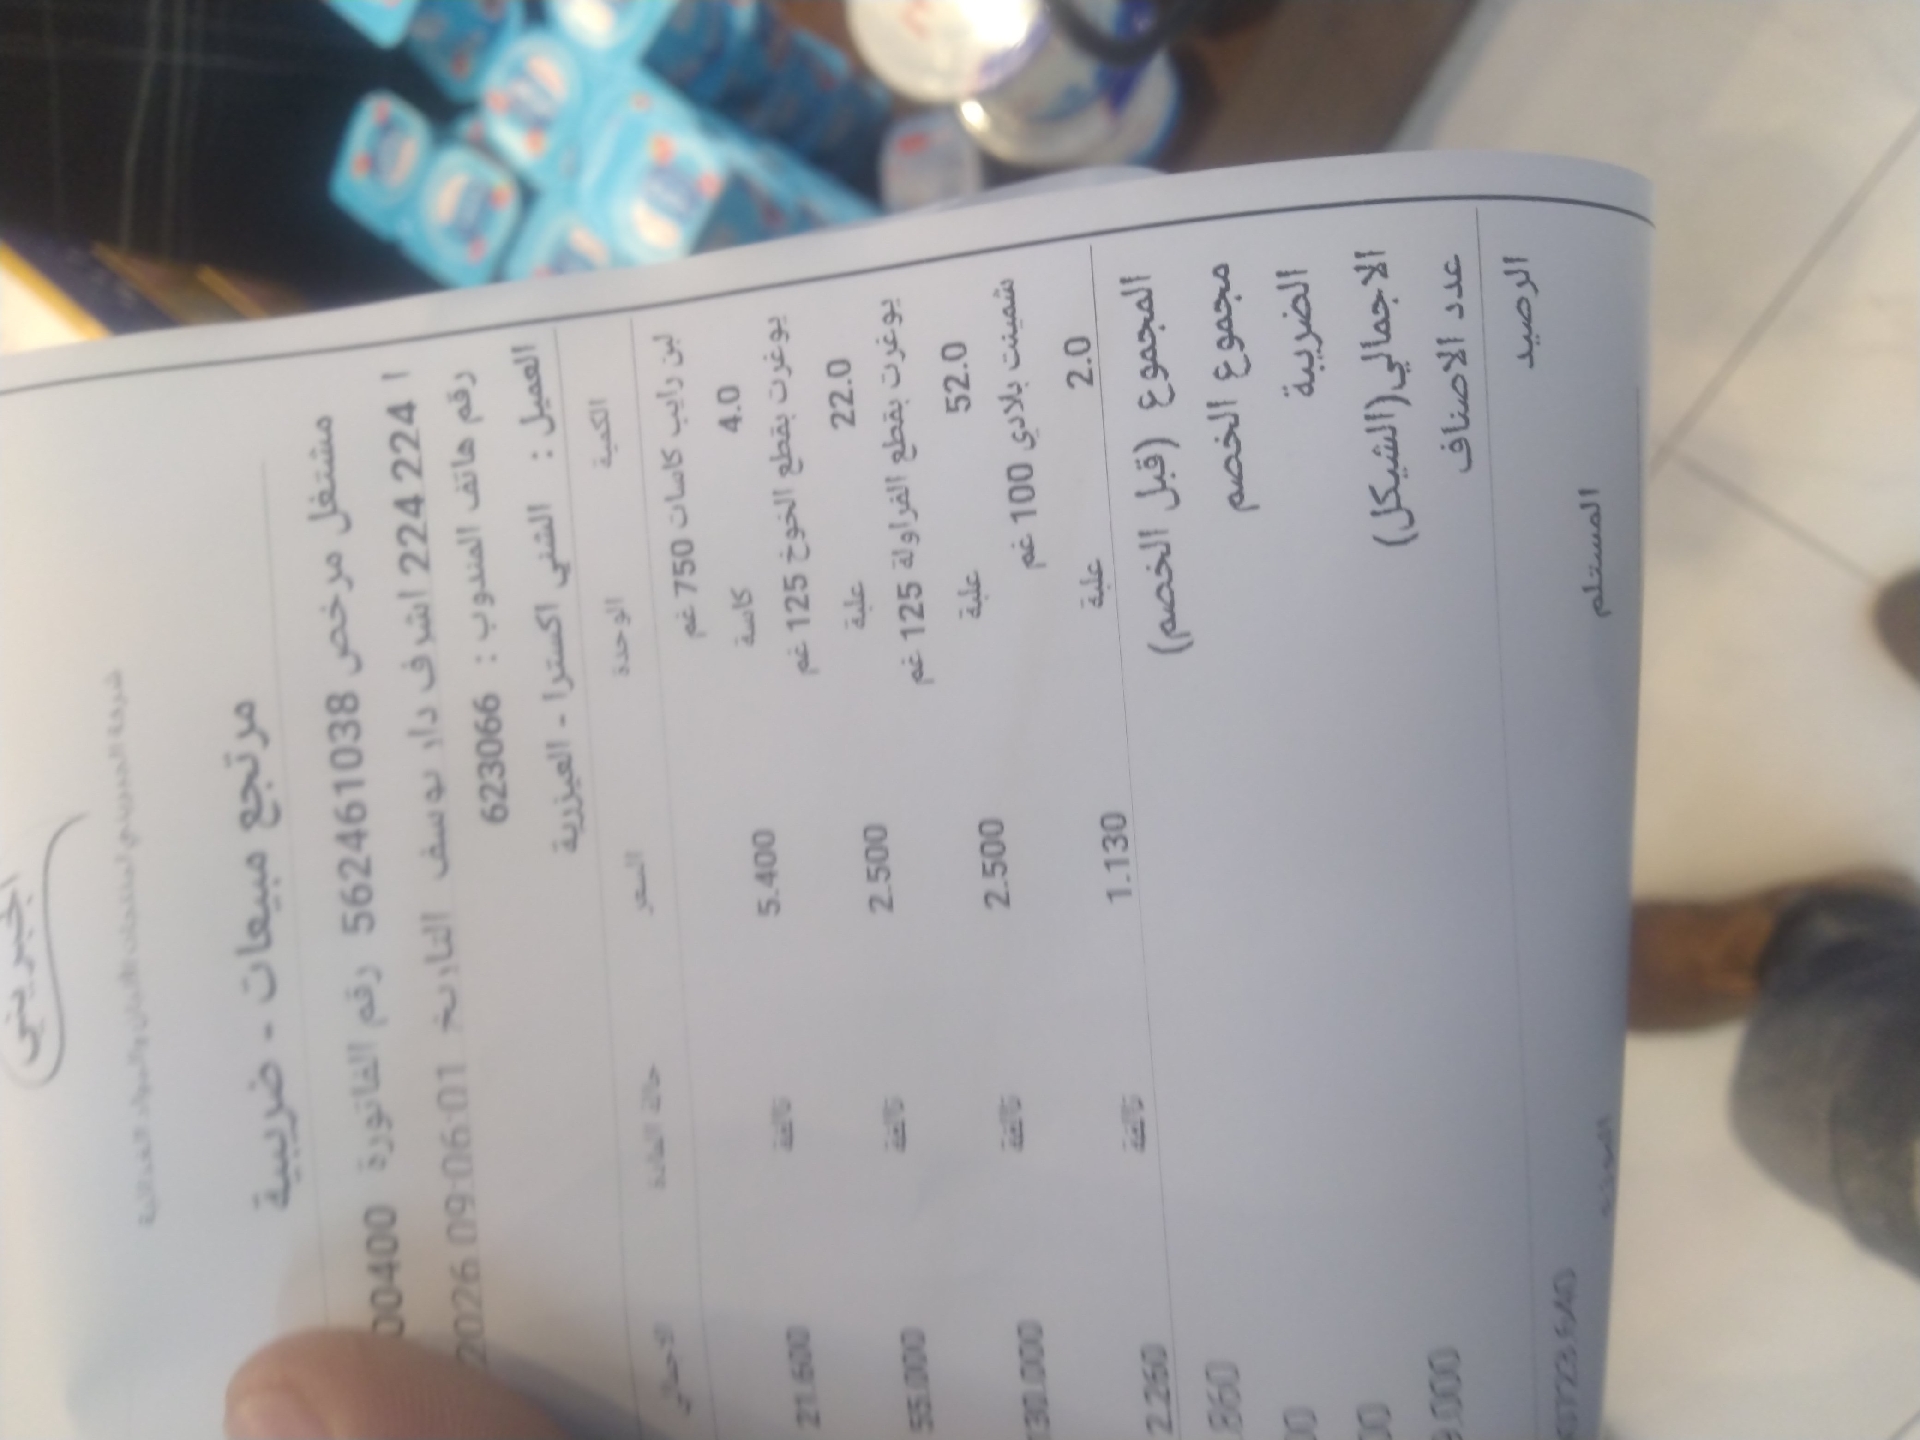 الجبريني
شركة الجبريني لمنتجات الالبان والمواد الغذائية
مرتجع مبيعات - ضريبية
مشتغل مرخص 562461038 رقم الفاتورة 00400
224 224 اشرف دار يوسف التاريخ 2026 09:06:01
رقم هاتف المندوب : 623066
العميل : الشني اكسترا - العيزرية
الكمية الوحدة السعر حالة المادة الاجمالي
لبن رايب كاسات 750 غم
4.0 كاسة 5.400 تالفة 21.600
يوغرت بقطع الخوخ 125 غم
22.0 علبة 2.500 تالفة 55.000
يوغرت بقطع الفراولة 125 غم
52.0 علبة 2.500 تالفة 130.000
شمينت بلادي 100 غم
2.0 علبة 1.130 تالفة 2.260
المجموع (قبل الخصم) .860
مجموع الخصم 00
الضريبة 00
الاجمالي(الشيكل)
عدد الاصناف
الرصيد
المستلم